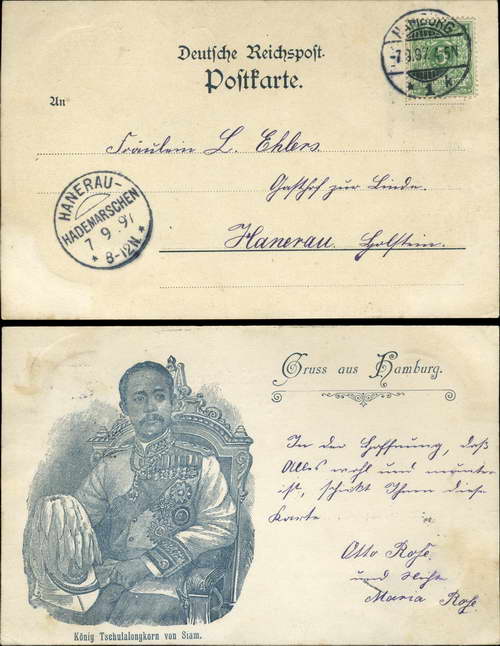 Deutsche Reichspost.
Postkarte.
An
HAMBURG
7.9.97. 4-5N
* 1 k
Fräulein L. Ehlers.
Gasthof zur Linde.
Hanerau. Holstein.
HANERAU-
HADEMARSCHEN
7 9 97
* 8-12N. *
Gruss aus Hamburg.
In der Hoffnung, daß
Alles wohl und munter
ist, schickt Ihnen diese
Karte
Otto Rose.
und
Maria Rose.
König Tschulalongkorn von Siam.